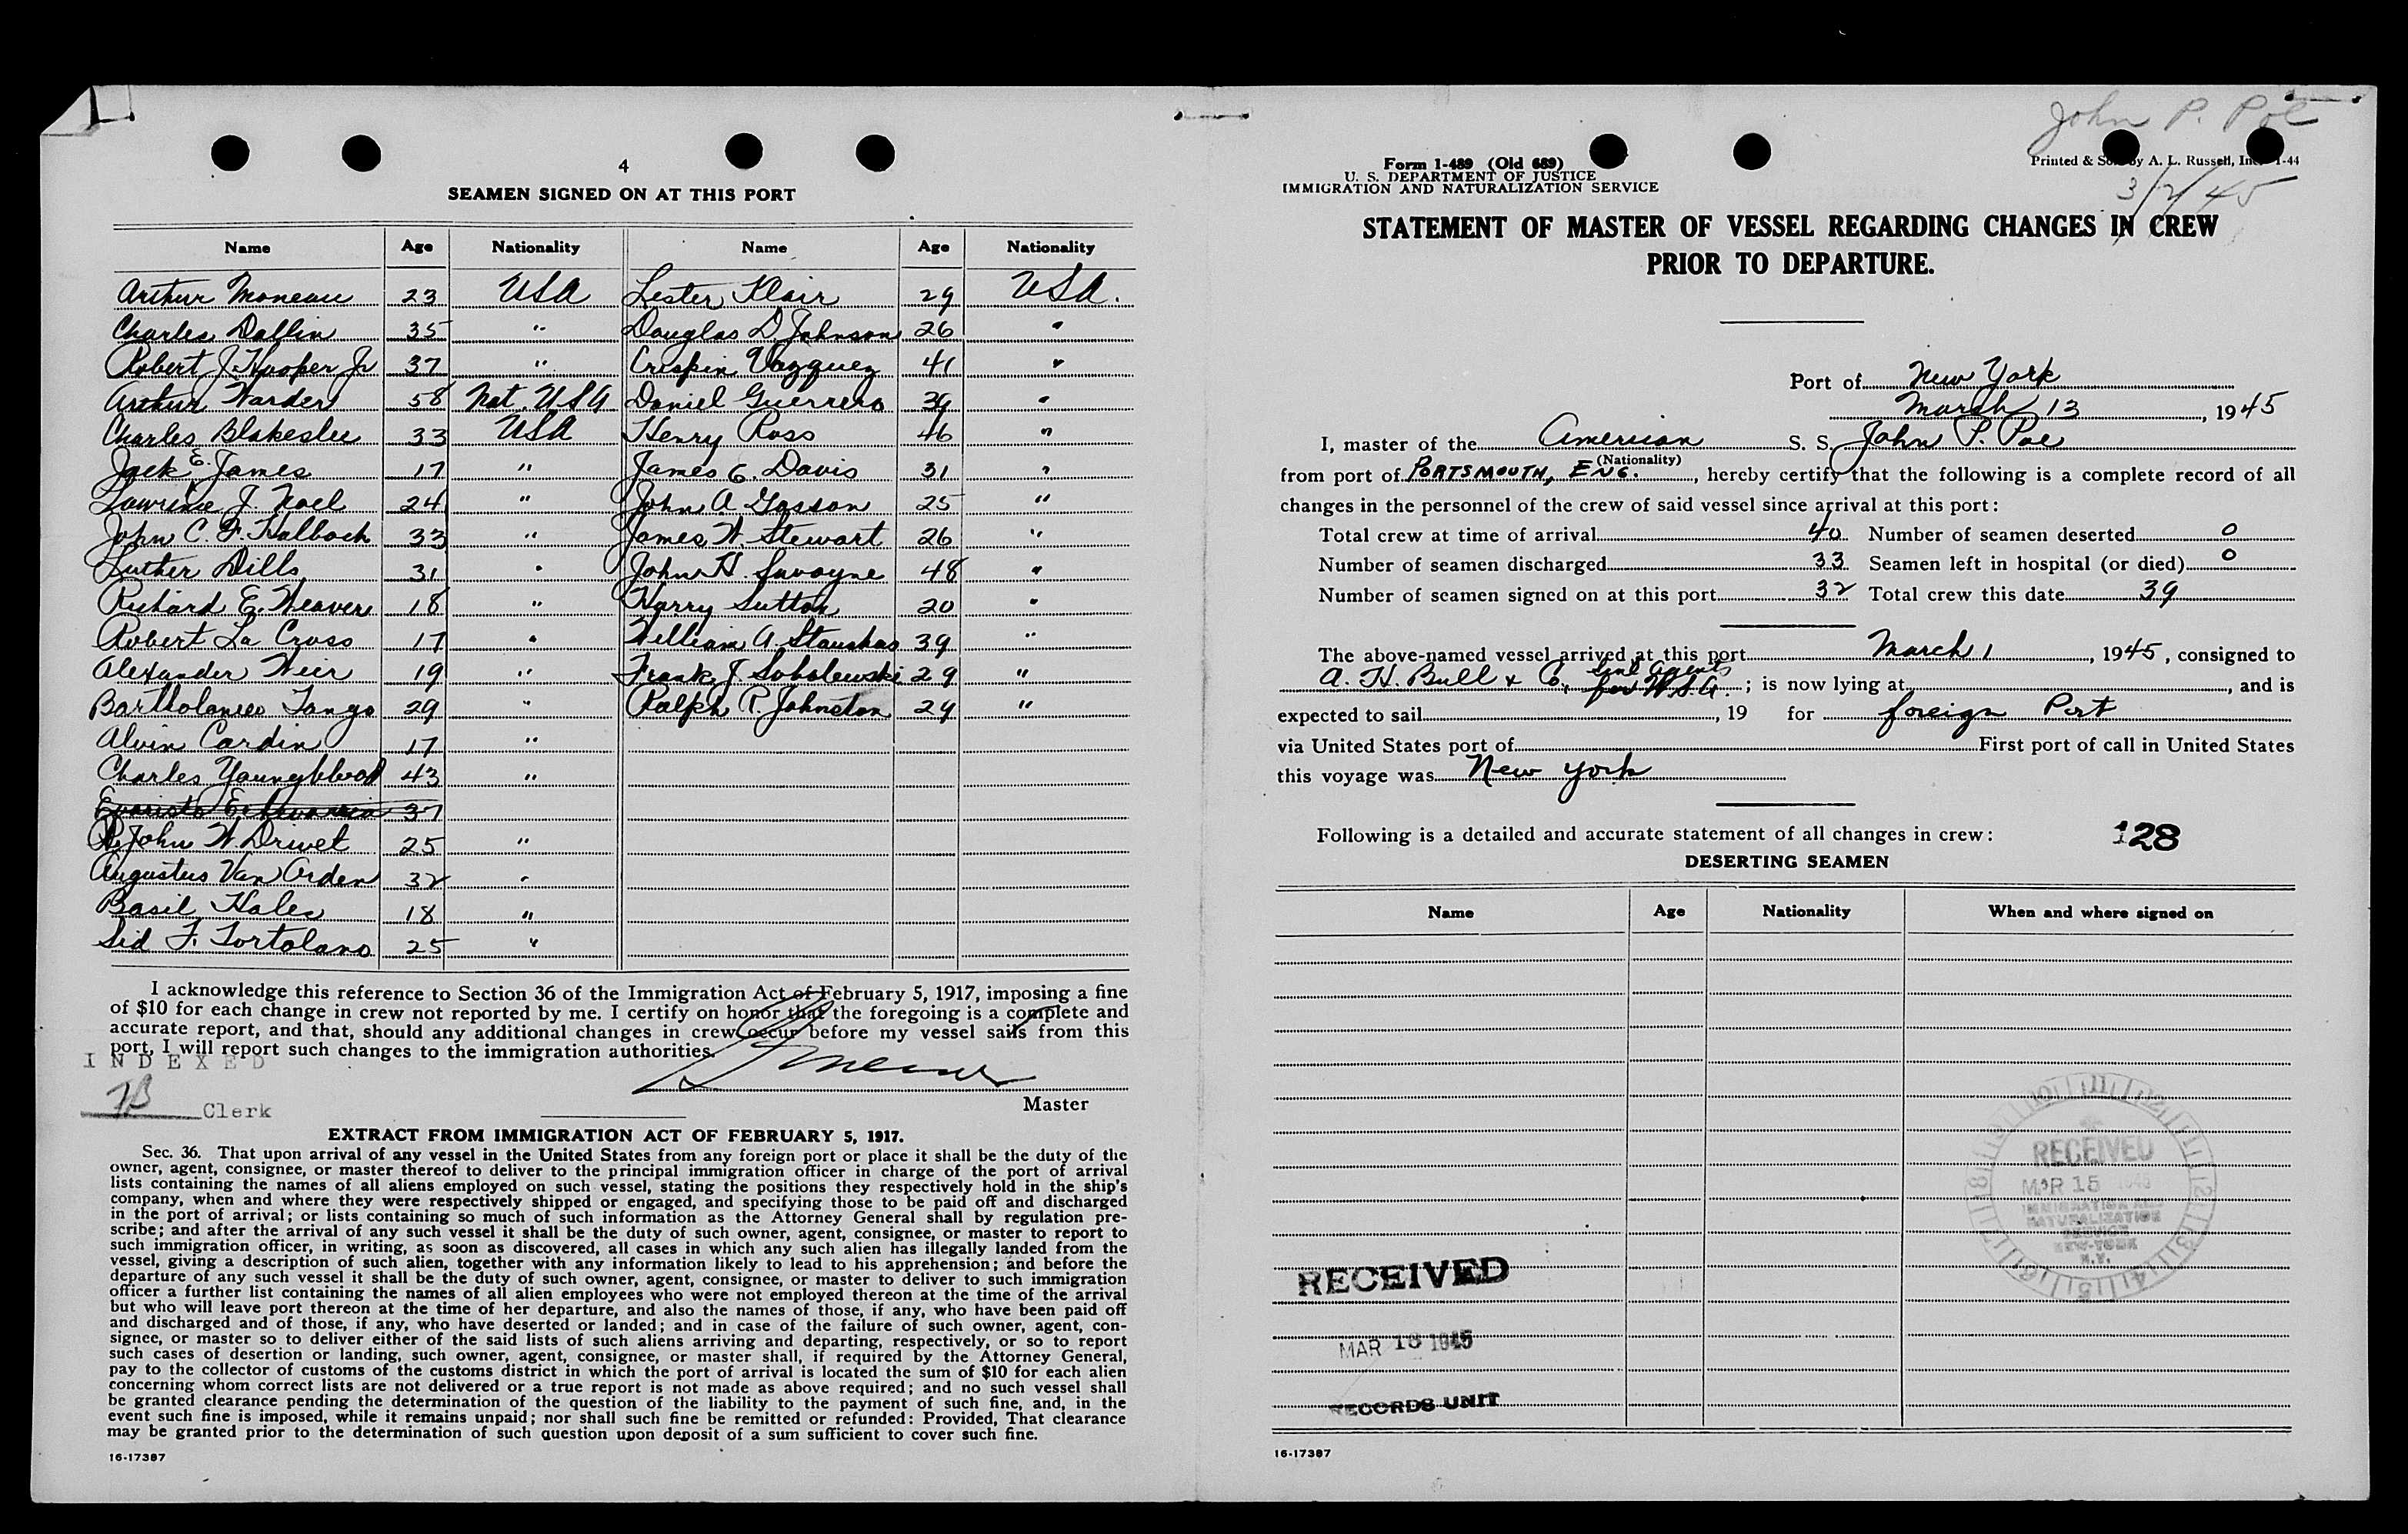 4
SEAMEN SIGNED ON AT THIS PORT
Name Age Nationality Name Age Nationality
Arthur Moneau 23 USA Lester Klair 29 USA.
Charles Dallin 35 " Douglas D. Johnson 26 "
Robert J. Hooper Jr 37 " Crispin Vazquez 41 "
Arthur Warder 58 Nat. USA Daniel Guerrero 39 "
Charles Blakeslee 33 USA Henry Ross 46 "
Jack E. James 17 " James C. Davis 31 "
Lawrence J. Noel 24 " John A. Gasson 25 "
John C. F. Halbach 33 " James W. Stewart 26 "
Luther Dills 31 " John H. 48 "
Richard E. Weaver 18 " Harry Sutton 20 "
Robert La Cross 17 " William A. Stauskas 39 "
Alexander Weir 19 " Frank J. Sobolewski 29 "
Bartholomeo Tango 29 " Ralph P. Johnston 29 "
Alvin Cardin 17 "
Charles Youngblood 43 "
Evaristo Echevarria 37
John W. Drivet 25 "
Augustus Van Orden 32 "
Basil Hales 18 "
Sid F. Tortolano 25 "
I acknowledge this reference to Section 36 of the Immigration Act of February 5, 1917, imposing a fine
of $10 for each change in crew not reported by me. I certify on honor that the foregoing is a complete and
accurate report, and that, should any additional changes in crew occur before my vessel sails from this
port, I will report such changes to the immigration authorities.
INDEXED
Clerk
Master
EXTRACT FROM IMMIGRATION ACT OF FEBRUARY 5, 1917.
Sec. 36. That upon arrival of any vessel in the United States from any foreign port or place it shall be the duty of the
owner, agent, consignee, or master thereof to deliver to the principal immigration officer in charge of the port of arrival
lists containing the names of all aliens employed on such vessel, stating the positions they respectively hold in the ship's
company, when and where they were respectively shipped or engaged, and specifying those to be paid off and discharged
in the port of arrival; or lists containing so much of such information as the Attorney General shall by regulation pre-
scribe; and after the arrival of any such vessel it shall be the duty of such owner, agent, consignee, or master to report to
such immigration officer, in writing, as soon as discovered, all cases in which any such alien has illegally landed from the
vessel, giving a description of such alien, together with any information likely to lead to his apprehension; and before the
departure of any such vessel it shall be the duty of such owner, agent, consignee, or master to deliver to such immigration
officer a further list containing the names of all alien employees who were not employed thereon at the time of the arrival
but who will leave port thereon at the time of her departure, and also the names of those, if any, who have been paid off
and discharged and of those, if any, who have deserted or landed; and in case of the failure of such owner, agent, con-
signee, or master so to deliver either of the said lists of such aliens arriving and departing, respectively, or so to report
such cases of desertion or landing, such owner, agent, consignee, or master shall, if required by the Attorney General,
pay to the collector of customs of the customs district in which the port of arrival is located the sum of $10 for each alien
concerning whom correct lists are not delivered or a true report is not made as above required; and no such vessel shall
be granted clearance pending the determination of the question of the liability to the payment of such fine, and, in the
event such fine is imposed, while it remains unpaid; nor shall such fine be remitted or refunded: Provided, That clearance
may be granted prior to the determination of such question upon deposit of a sum sufficient to cover such fine.
16-17387
John P. Poe
Form I-489 (Old 689)
U. S. DEPARTMENT OF JUSTICE
IMMIGRATION AND NATURALIZATION SERVICE
Printed & Sold by A. L. Russell, Inc. 1-44
3/2/45
STATEMENT OF MASTER OF VESSEL REGARDING CHANGES IN CREW
PRIOR TO DEPARTURE.
Port of New York
March 13, 1945
I, master of the American S. S. John P. Poe
(Nationality)
from port of PORTSMOUTH, ENG., hereby certify that the following is a complete record of all
changes in the personnel of the crew of said vessel since arrival at this port:
Total crew at time of arrival 40 Number of seamen deserted 0
Number of seamen discharged 33 Seamen left in hospital (or died) 0
Number of seamen signed on at this port 32 Total crew this date 39
The above-named vessel arrived at this port March 1, 1945, consigned to
A. H. Bull & Co., Genl Agents for W.S.A.; is now lying at , and is
expected to sail , 19 for foreign Port
via United States port of First port of call in United States
this voyage was New York
Following is a detailed and accurate statement of all changes in crew: 128
DESERTING SEAMEN
Name Age Nationality When and where signed on
RECEIVED
MAR 15 1945
IMMIGRATION AND
NATURALIZATION
SERVICE
NEW-YORK
N.Y.
RECEIVED
MAR 18 1945
RECORDS UNIT
16-17387